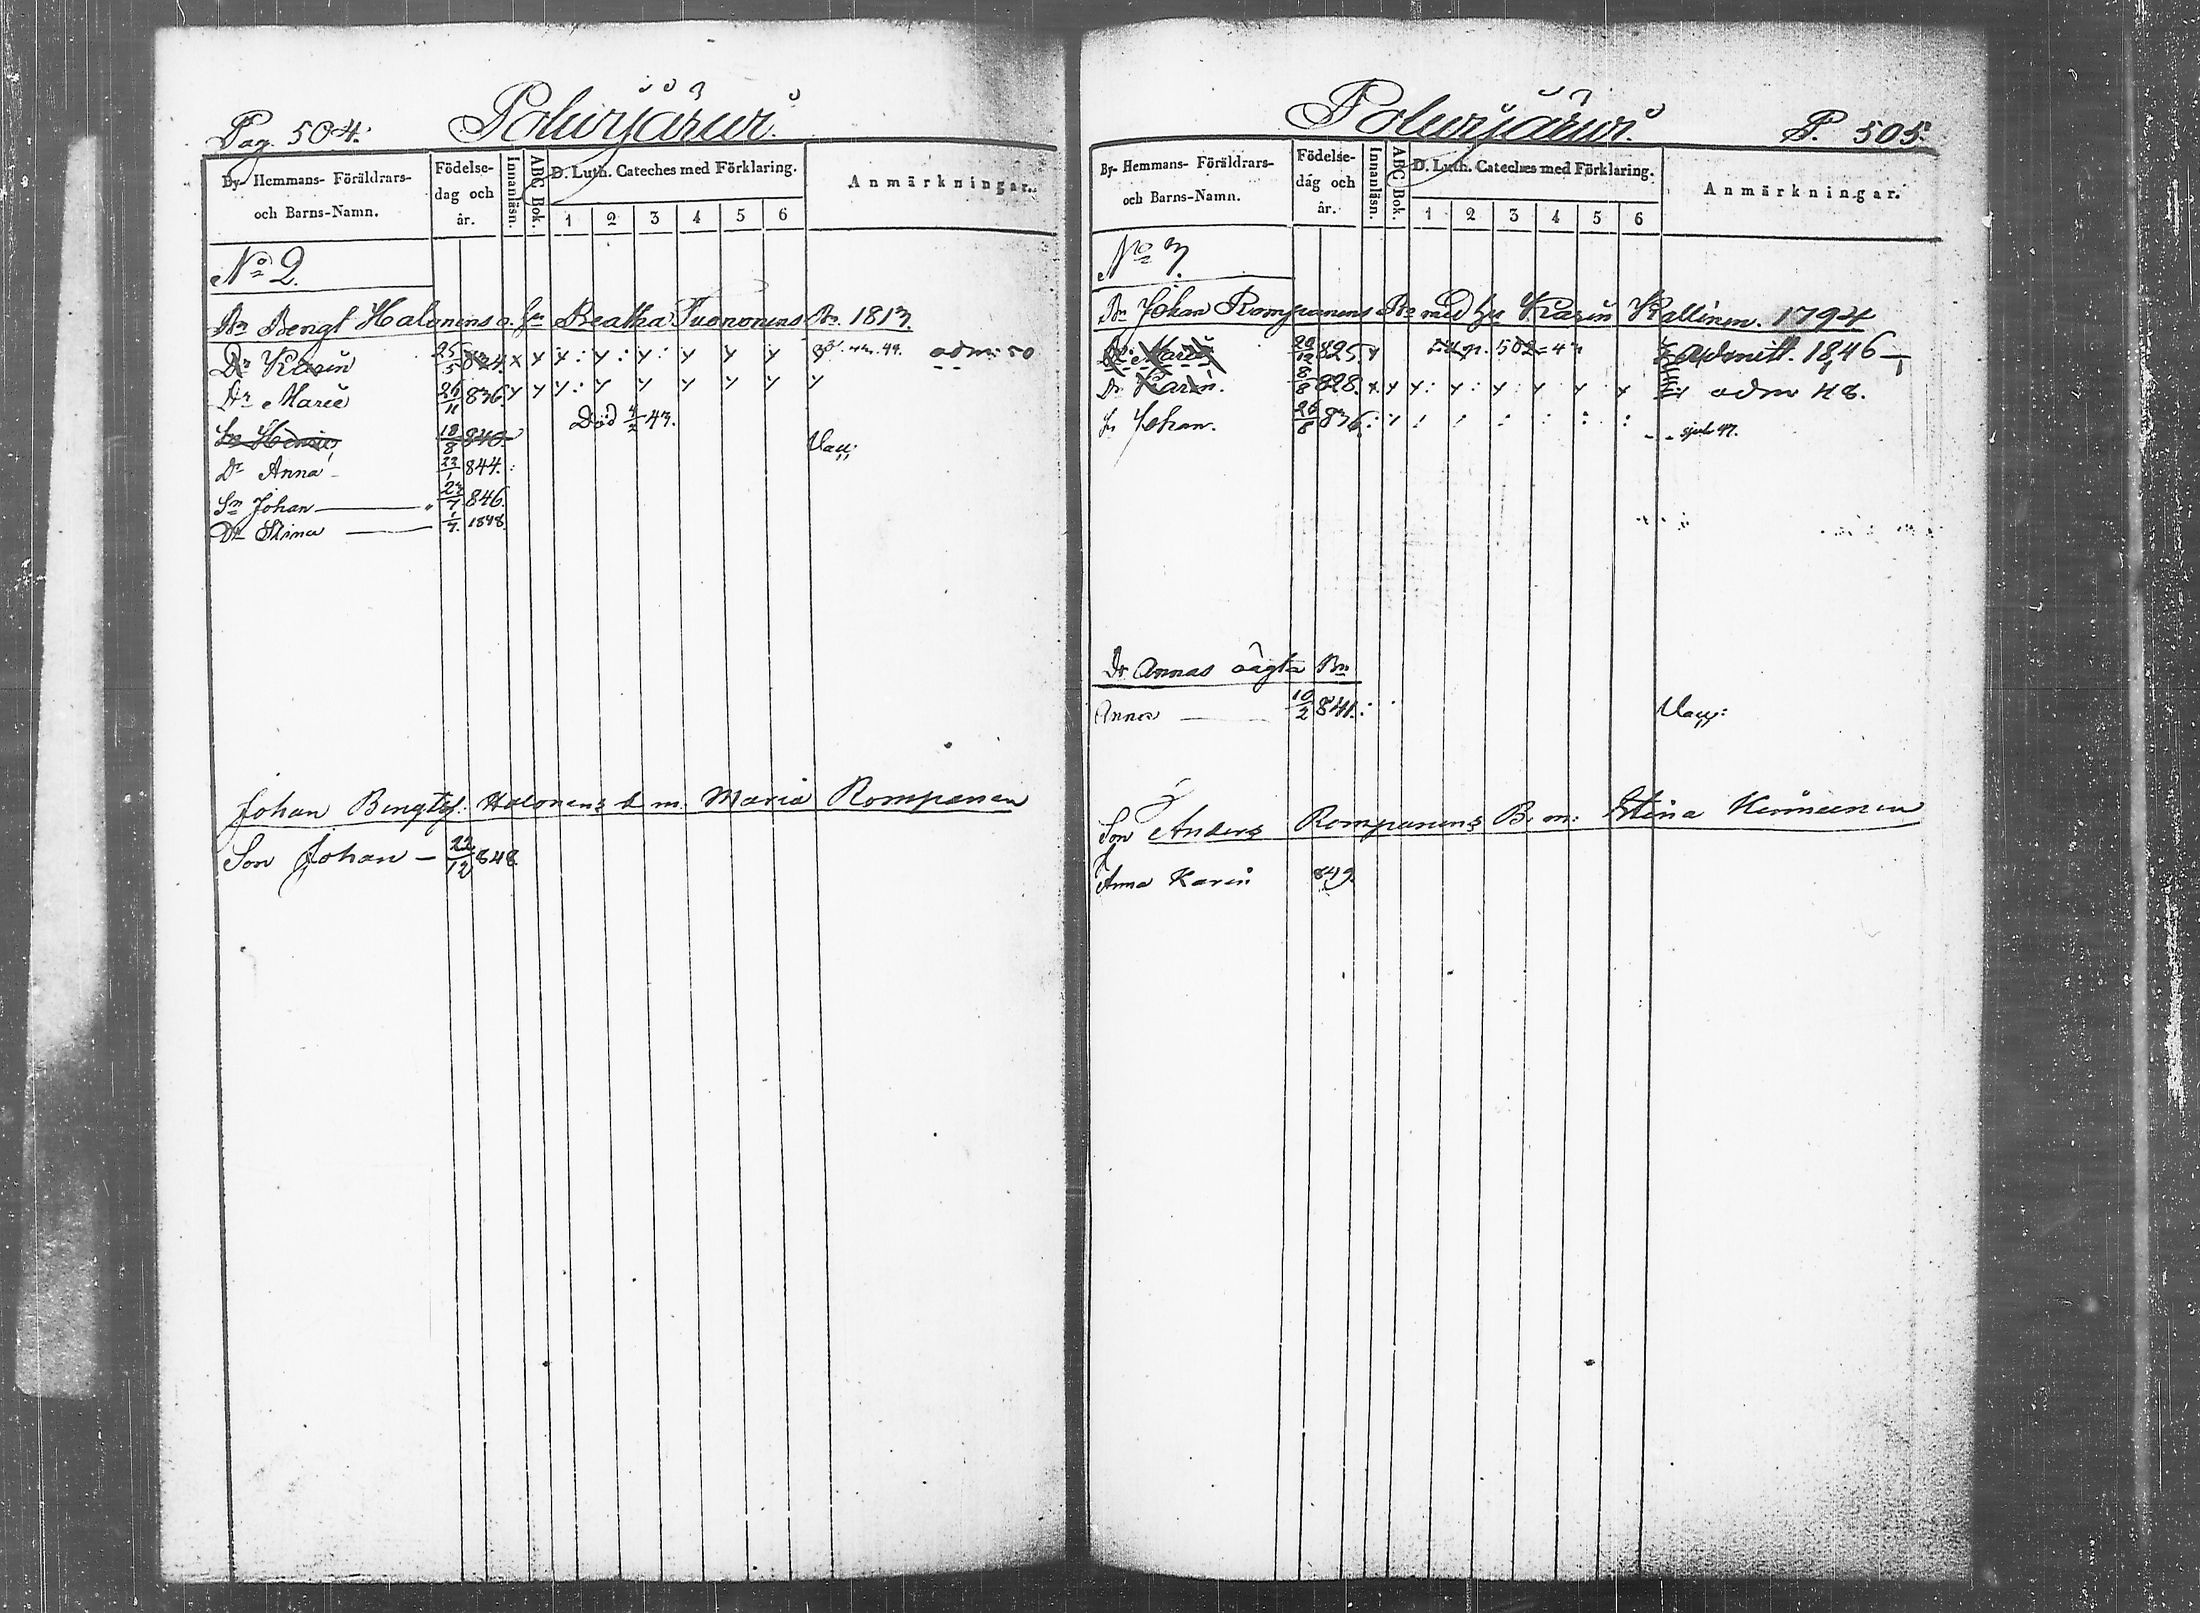 Pag. 504. Polvijärvi.
By- Hemmans- Föräldrars- och Barns-Namn. Födelse-dag och år. Innanläsn. ABC Bok. D. Luth. Cateches med Förklaring. Anmärkningar.
1 2 3 4 5 6
No 2.
Bn Bengt Halonens o. hu Beatha Tuononens Bn 1813.
Dr Karin 25/5 834. x y y: y: y: y y y 49. adm: 50
Dr Marie 26/11 836. y y y: y y y y y y
Sn Henric 18/8 840 Död 4/2 43.
Dr Anna 22/1 844. : Vacc:
Sn Johan 23/7 846.
Dr Stina 1/7. 1848.
Johan Bengts: Halonens b m. Maria Rompanen
Son Johan — 22/12 848
Polvijärvi. P. 505.
By- Hemmans- Föräldrars- och Barns-Namn. Födelse-dag och år. Innanläsn. ABC Bok. D. Luth. Cateches med Förklaring. Anmärkningar.
1 2 3 4 5 6
No 3.
Bn Johan Rompanens Bn med hu Karin Kallinen. 1794
Dr Maria 20/12 825. y p. 502 admitt. 1846 —
Dr Karin. 8/8 828. x y y: y: y: y y y adm 48.
Sn Johan. 26/8 836. : y : : : : : : 47.
Dr Annas oägta Bn
Anna 10/2 841. : Vacc:
Son Anders Rompanens B. m: Stina
Anna Karin 849.